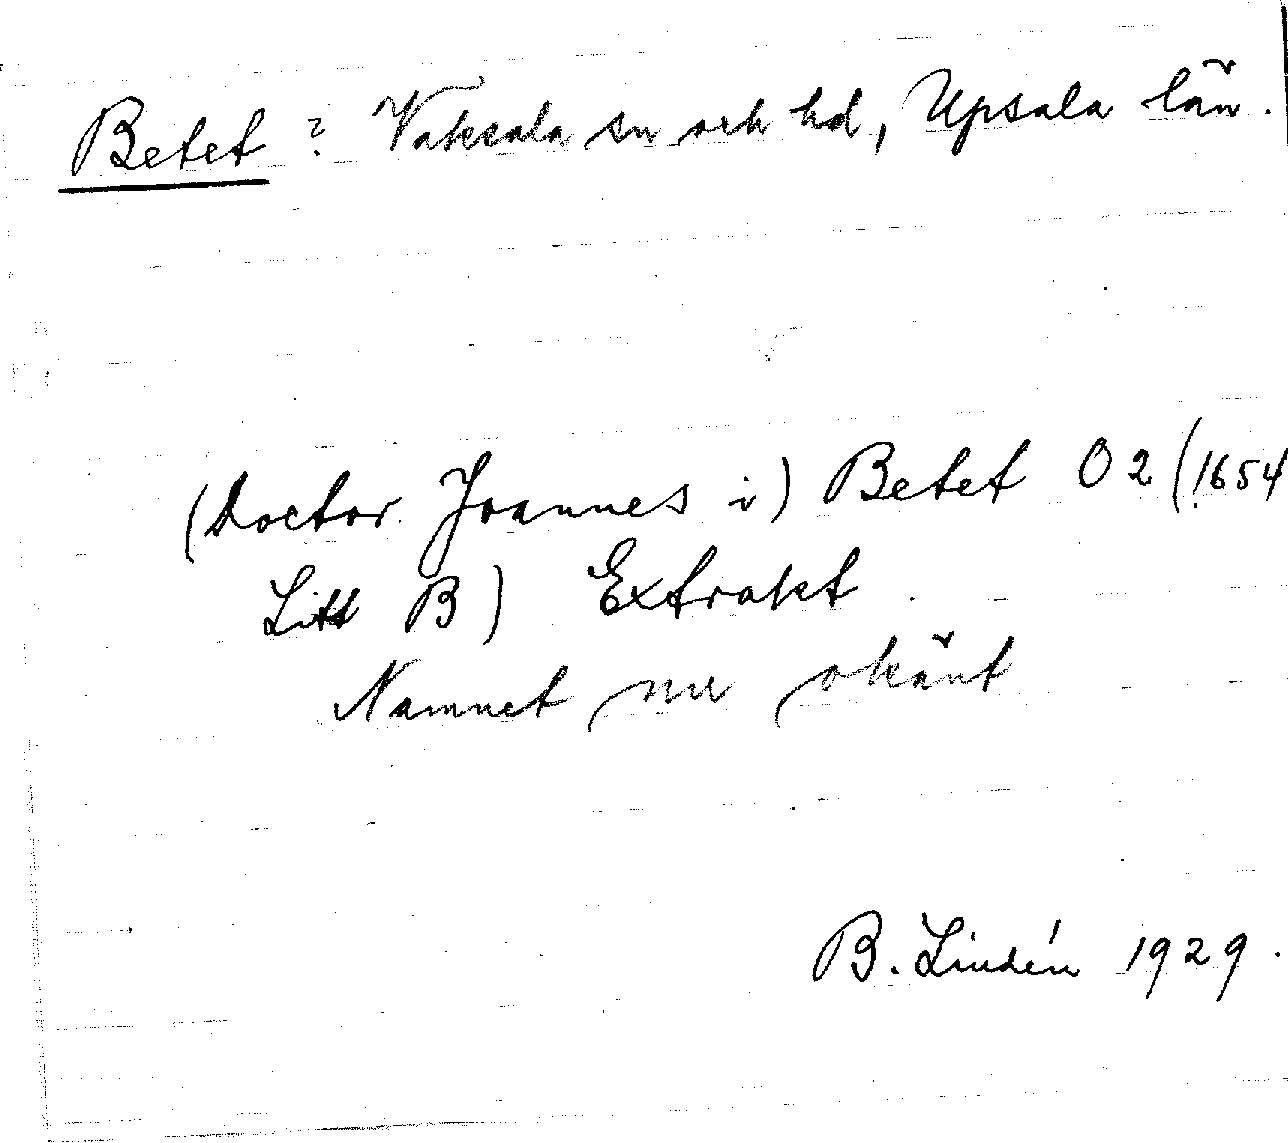 Betet ? Vaksala sn och hd, Upsala län.
(Doctor Joannes i) Betet O 2 (1654
Litt B) Extrakt
Namnet nu okänt
B. Lindén 1929.